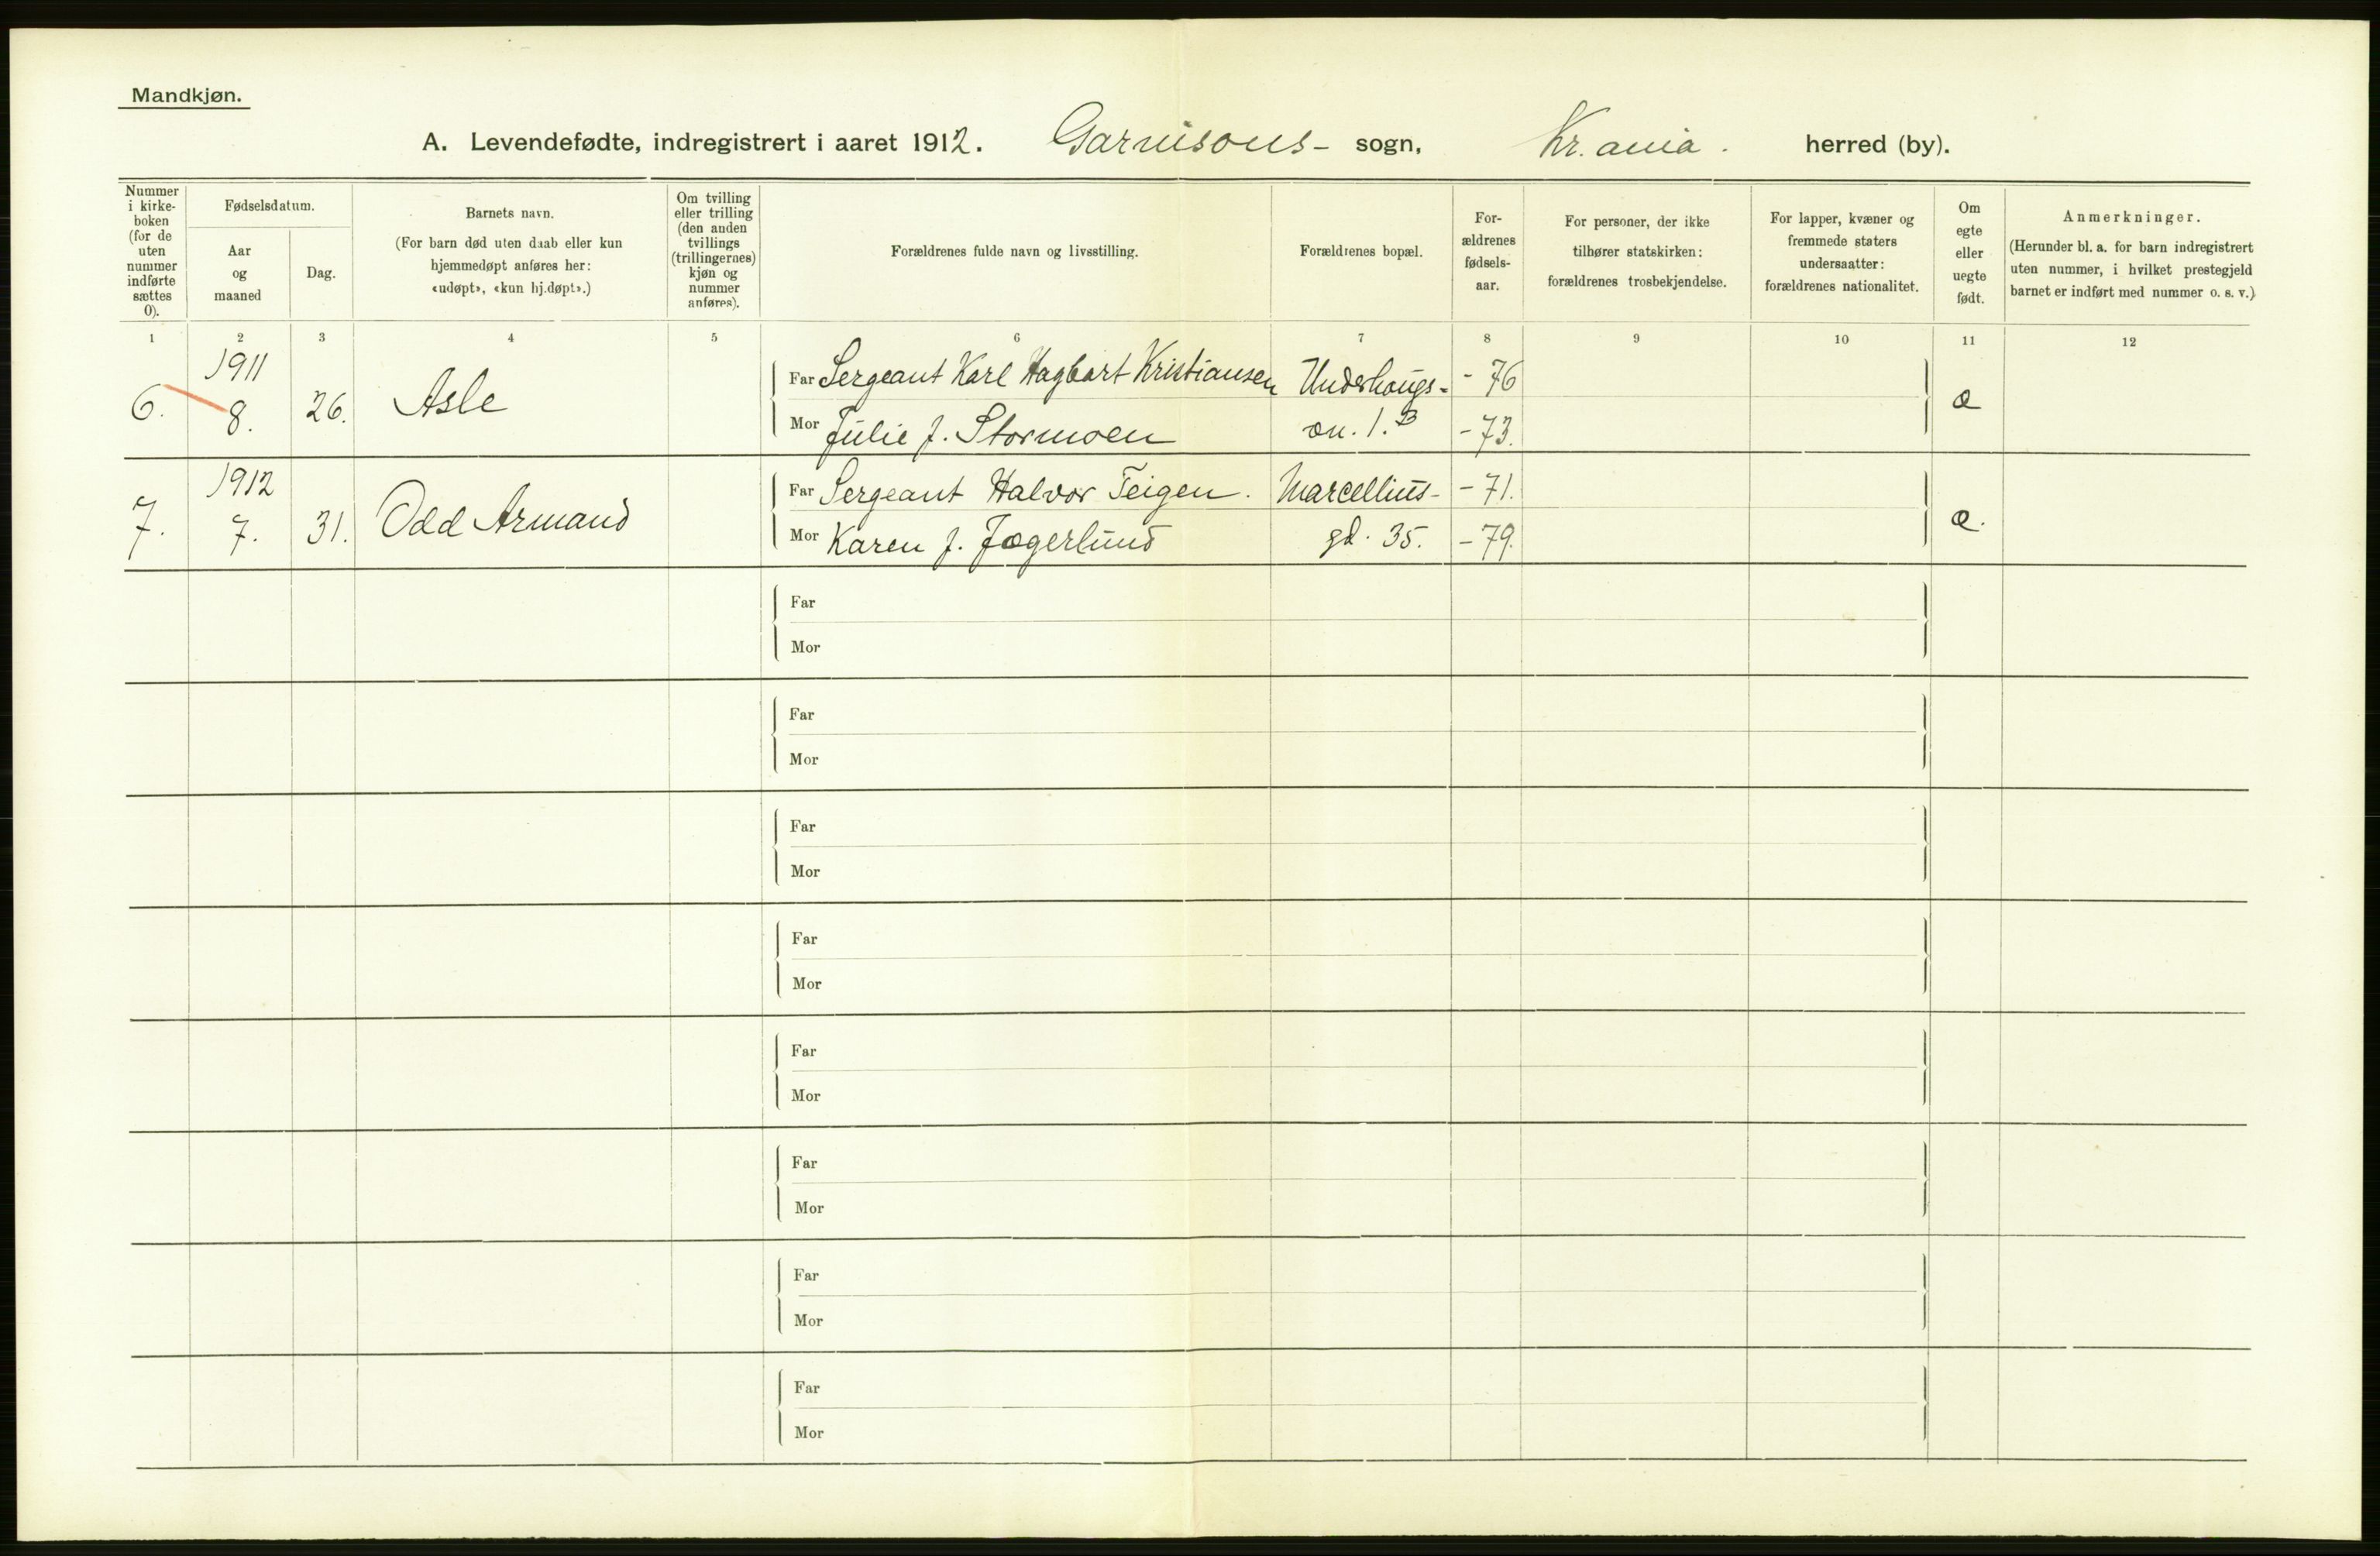 Mandkjøn.
A. Levendefødte, indregistrert i aaret 1912. Garnisons- sogn, Kr.ania. herred (by).
Nummer
i kirke-
boken
(for de
uten
nummer
indførte
sættes
0).
Fødselsdatum.
Aar
og
maaned
Dag.
Barnets navn.
(For barn død uten daab eller kun
hjemmedøpt anføres her:
«udøpt», «kun hj.døpt».)
Om tvilling
eller trilling
(den anden
tvillings
(trillingernes)
kjøn og
nummer
anføres).
Forældrenes fulde navn og livsstilling.
Forældrenes bopæl.
For-
ældrenes
fødsels-
aar.
For personer, der ikke
tilhører statskirken:
forældrenes trosbekjendelse.
For lapper, kvæner og
fremmede staters
undersaatter:
forældrenes nationalitet.
Om
egte
eller
uegte
født.
Anmerkninger.
(Herunder bl. a. for barn indregistrert
uten nummer, i hvilket prestegjeld
barnet er indført med nummer o. s. v.)
1 2 3 4 5 6 7 8 9 10 11 12
1911
6. 8. 26. Asle
Far Sergeant Karl Hagbart Kristiansen Underhaugs- - 76
Mor Julie f. Stormoen vn. 1.B - 73.
æ
1912
7. 7. 31. Odd Armand
Far Sergeant Halvor Teigen. Marcellius- - 71.
Mor Karen f. Fagerlund gd. 35. - 79.
æ.
Far
Mor
Far
Mor
Far
Mor
Far
Mor
Far
Mor
Far
Mor
Far
Mor
Far
Mor